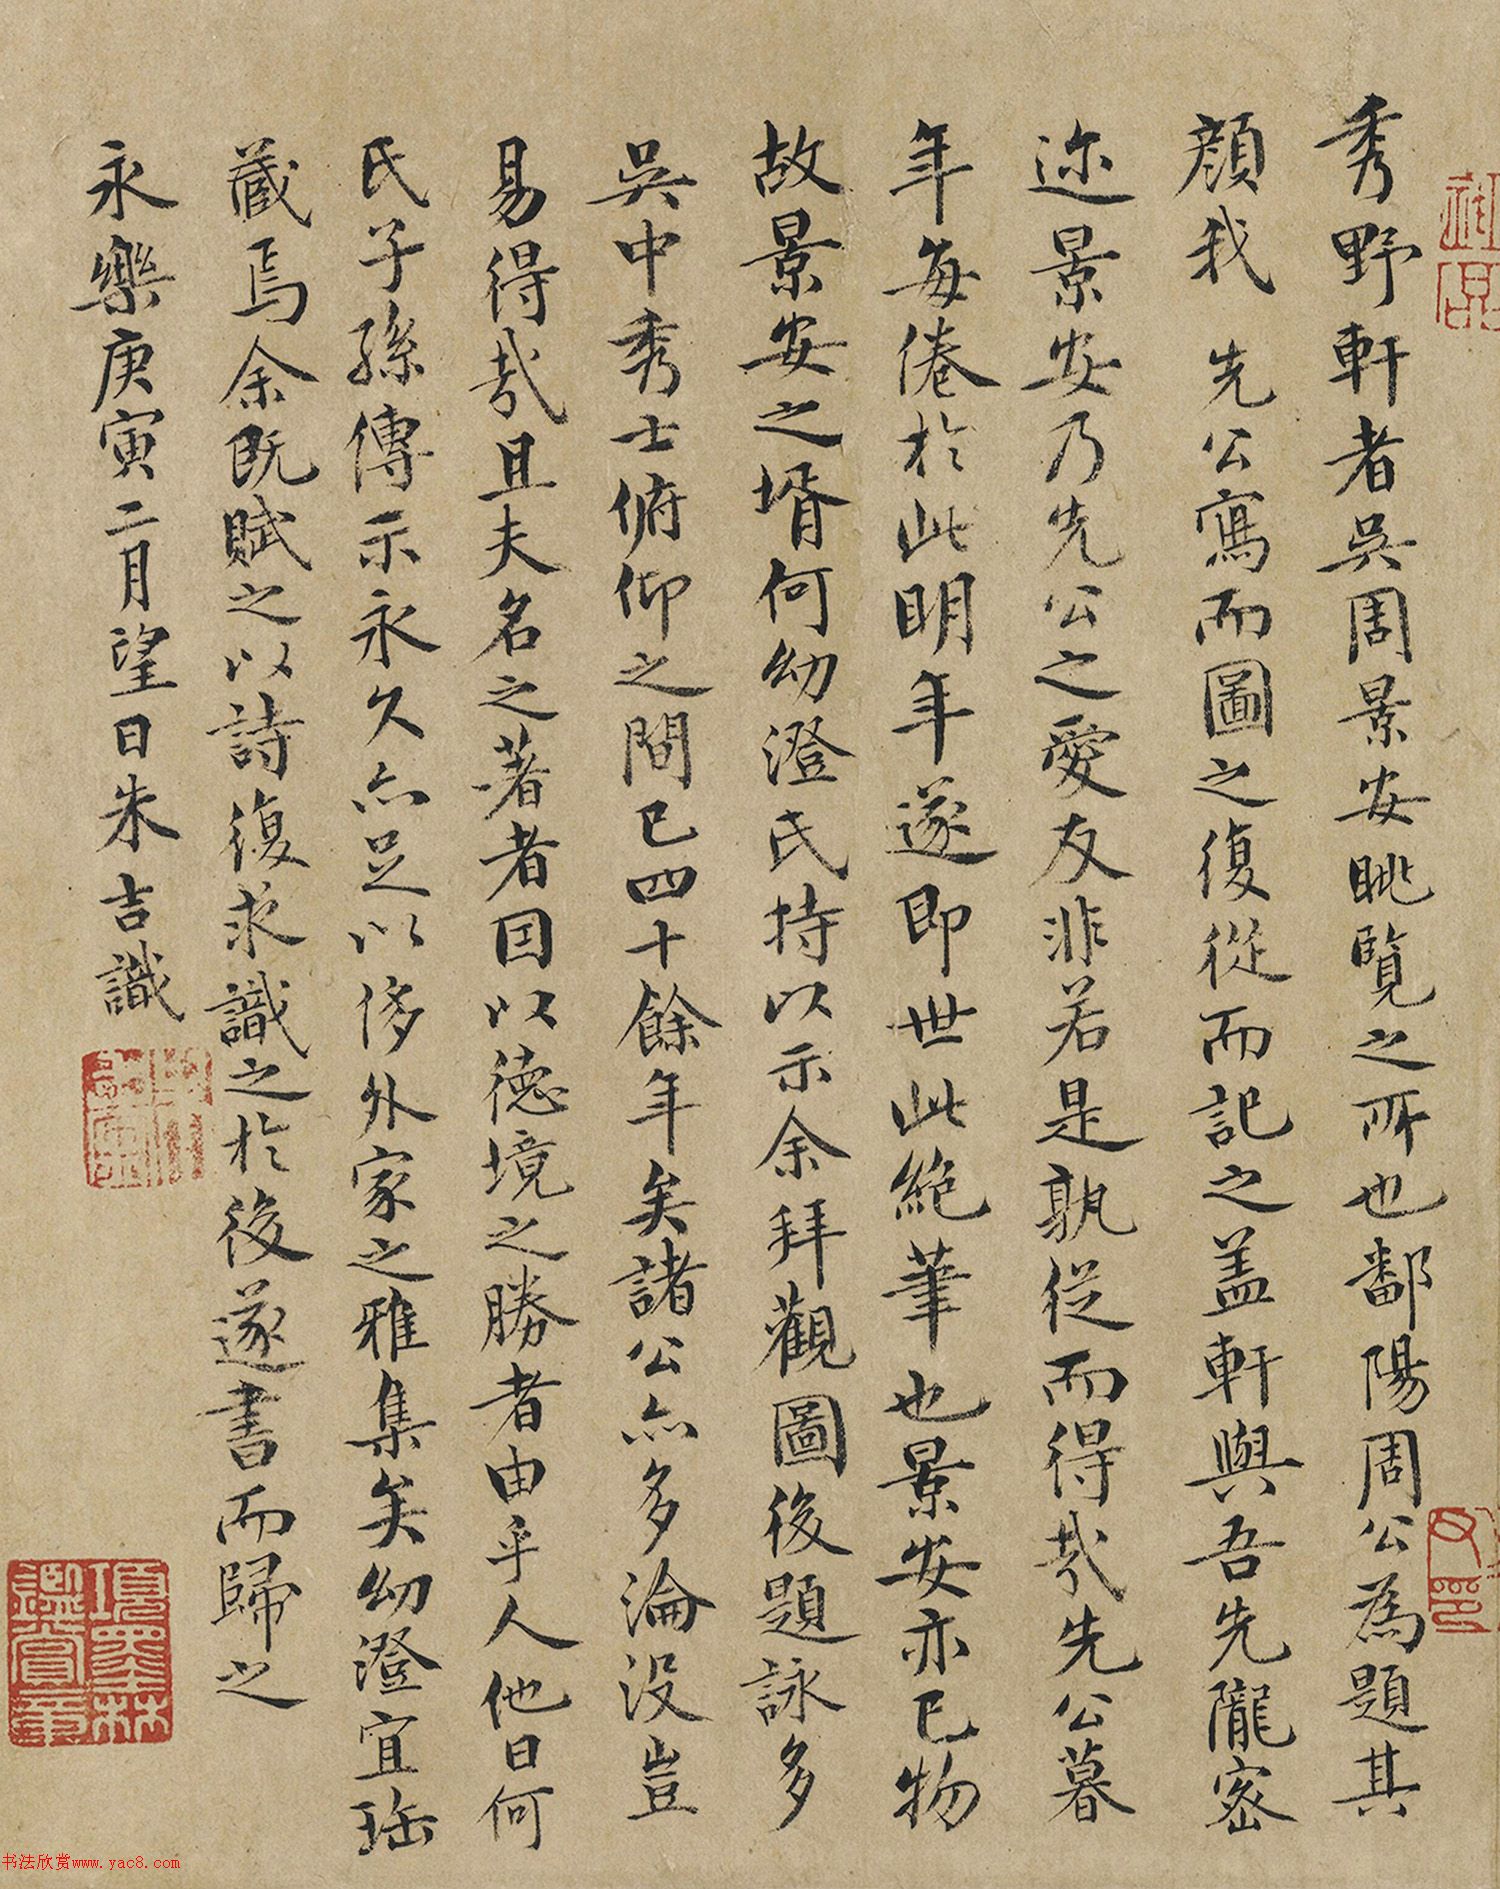 秀野軒者吳周景安眺覽之所也鄱陽周公為題其
顏我先公寫而圖之復從而記之盖軒與吾先隴密
迩景安乃先公之愛友非若是孰從而得㢤先公暮
年每倦於此明年遂即世此絶筆也景安亦已物
故景安之壻何幼澄氏持以示余拜觀圖後題詠多
吳中秀士俯仰之間已四十餘年矣諸公亦多淪没豈
易得㢤且夫名之著者因以德境之勝者由乎人他日何
氏子孫傳示永久亦足以侈外家之雅集矣幼澄宜珤
藏焉余既賦之以詩復求識之於後遂書而歸之
永樂庚寅二月望日朱吉識
項墨林鑑賞章
书法欣赏www.yac8.com